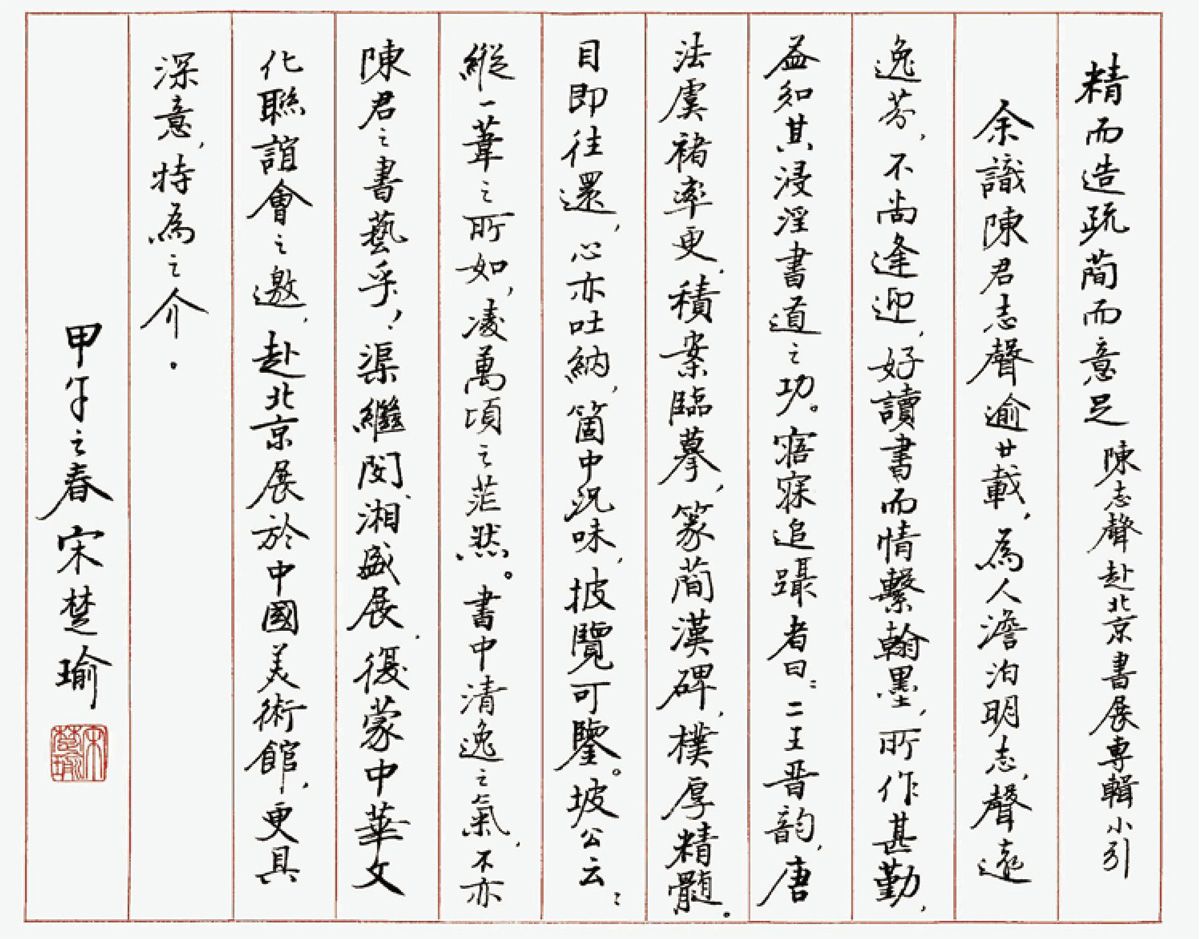 精而造疏簡而意足 陳志聲赴北京書展專輯小引
余識陳君志聲逾廿載,為人澹泊明志,聲遠
逸芬,不尚逢迎,好讀書而情繫翰墨,所作甚勤,
益知其浸淫書道之功。寤寐追躡者曰:二王晋韵,唐
法虞褚率更,積案臨摹,篆簡漢碑,樸厚精髓。
目即往還,心亦吐納,箇中況味,披覽可鑒。坡公云:
縱一葦之所如,凌萬頃之茫然。書中清逸之氣,不亦
陳君之書藝乎!渠繼閩、湘盛展,復蒙中華文
化聯誼會之邀,赴北京展於中國美術館,更具
深意,特為之介.
甲午之春 宋楚瑜
宋楚瑜